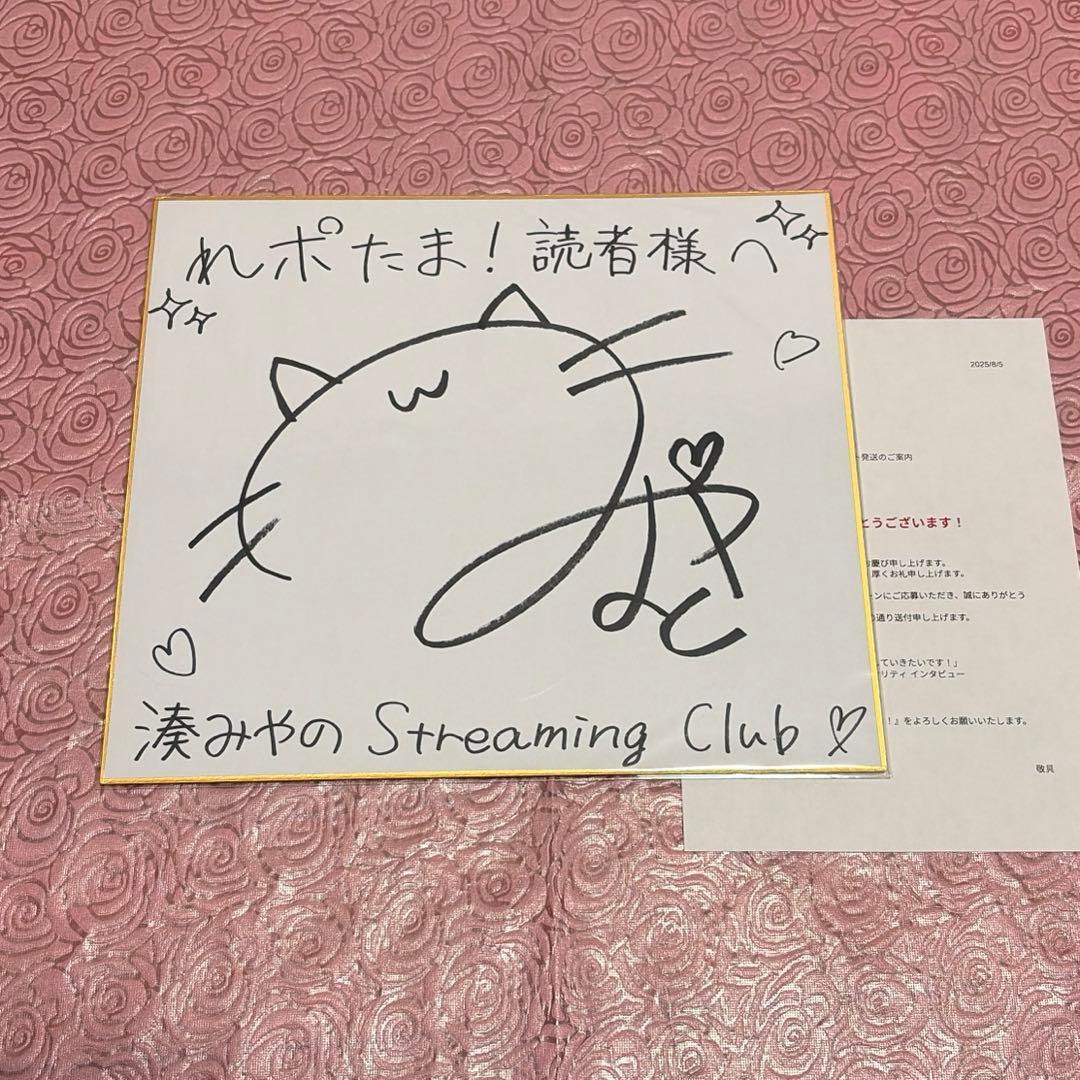 れポたま！読者様へ
湊みやの Streaming Club
2025/8/5
発送のご案内
とうございます！
慶び申し上げます。
厚くお礼申し上げます。
ンにご応募いただき、誠にありがとう
通り送付申し上げます。
ていきたいです！」
リティ インタビュー
！』をよろしくお願いいたします。
敬具